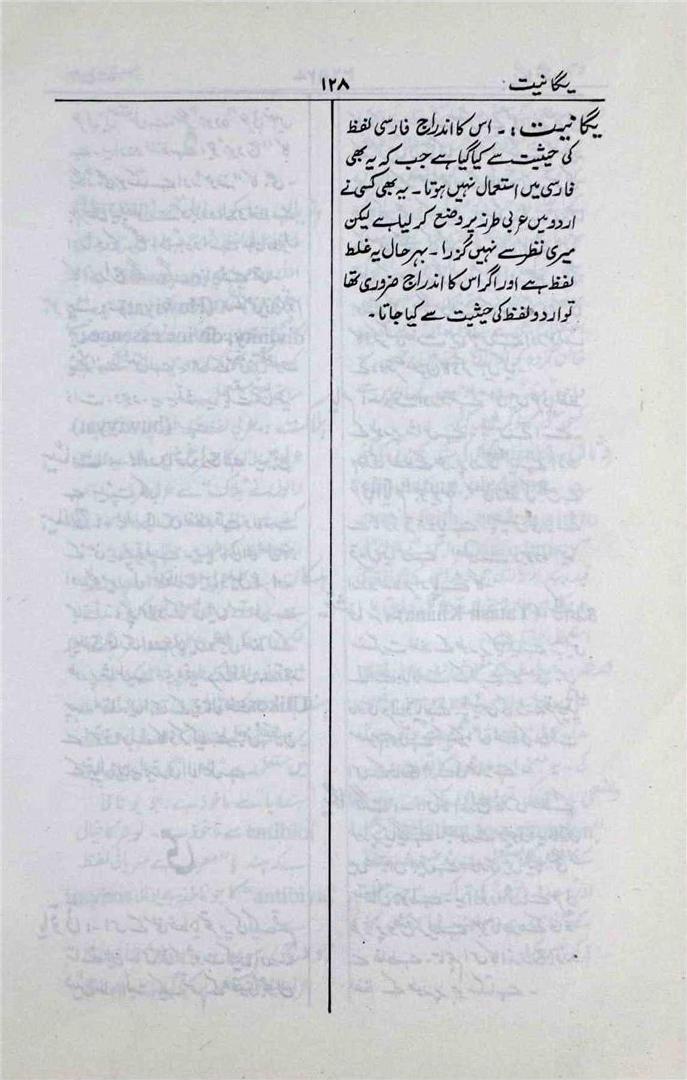 یگانیت
۱۲۸
یگانیت :۔ اس کا اندراج فارسی لفظ
کی حیثیت سے کیا گیا ہے جب کہ یہ بھی
فارسی میں استعمال نہیں ہوتا۔ یہ بھی کسی نے
اردو میں عربی طرز پر وضع کر لیا ہے لیکن
میری نظر سے نہیں گزرا۔ بہر حال یہ غلط
لفظ ہے اور اگر اس کا اندراج ضروری تھا
تو اردو لفظ کی حیثیت سے کیا جاتا۔